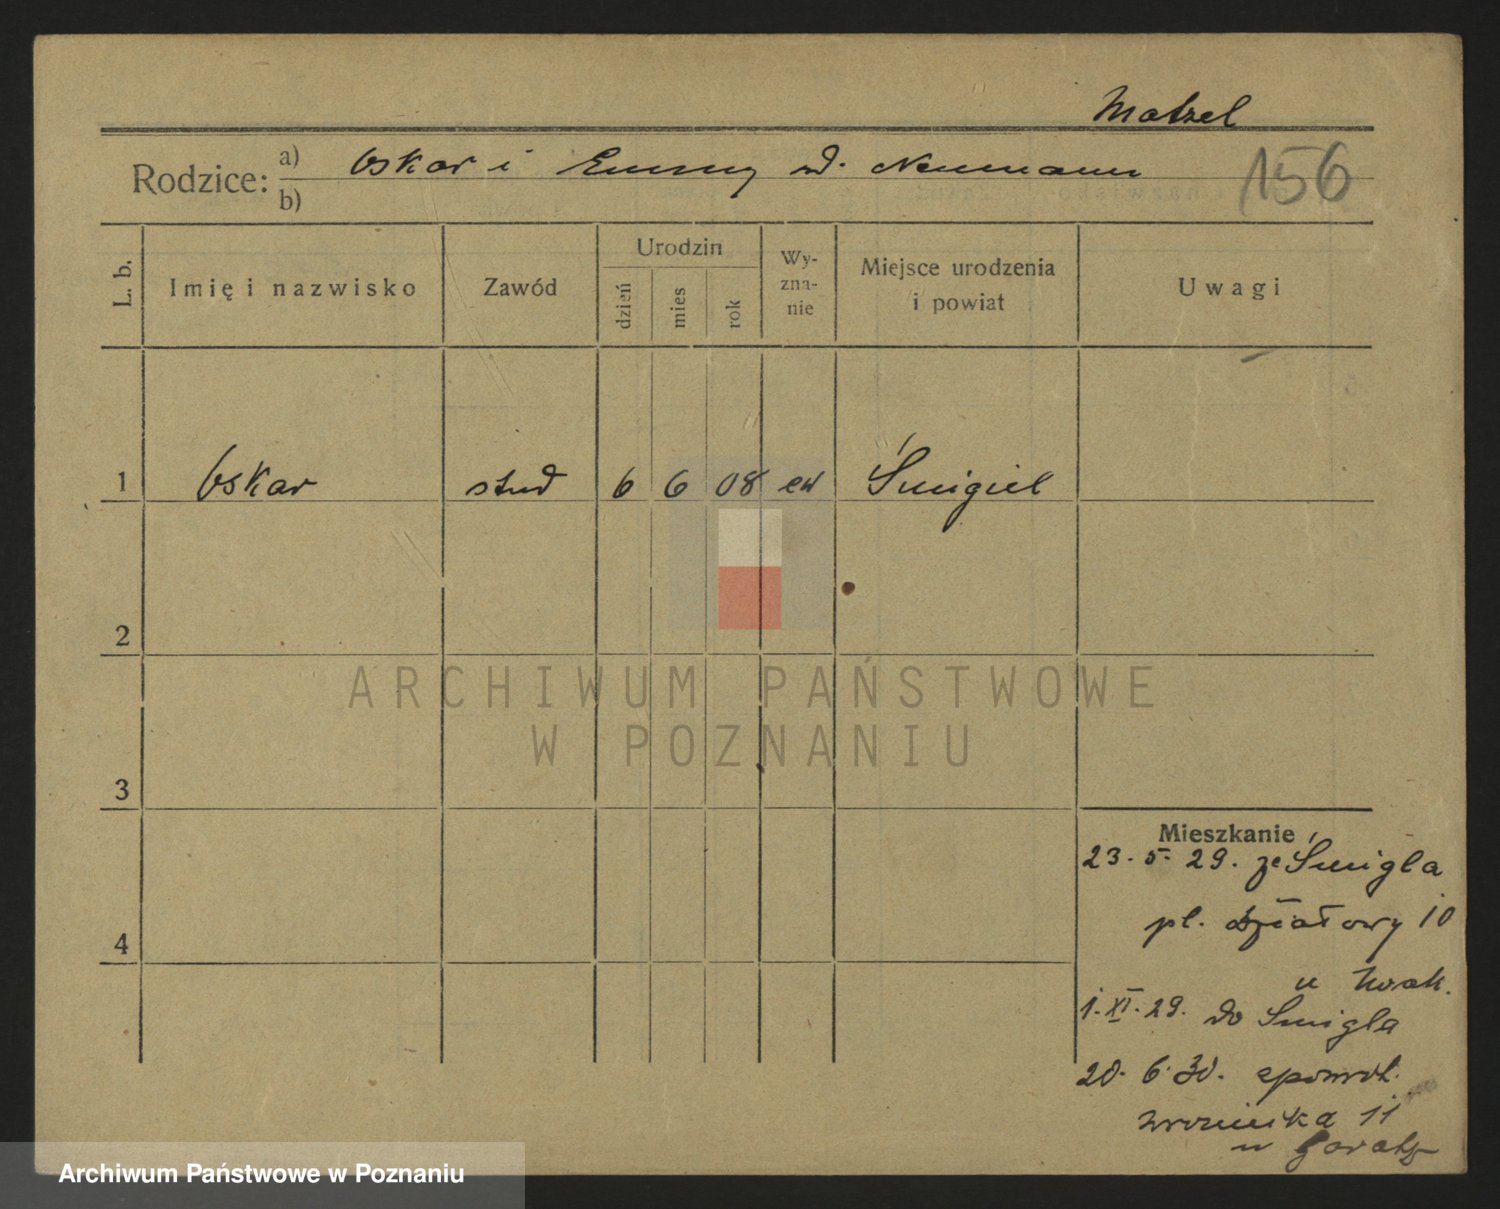 Matzel
Rodzice: a) Oskar i Emmy d. Neumann
b)
156
L. b.
Imię i nazwisko
Zawód
Urodzin
dzień
mies
rok
Wy-
zna-
nie
Miejsce urodzenia
i powiat
Uwagi
1 Oskar stud 6 6 08 ew Śmigiel
2
3
4
Mieszkanie
23. 5. 29. ze Śmigla
pl. Działowy 10
u Nowak.
1. XI. 29. do Śmigla
20. 6. 30. spowrot.
Wroniecka 11
u
ARCHIWUM PAŃSTWOWE
W POZNANIU
Archiwum Państwowe w Poznaniu